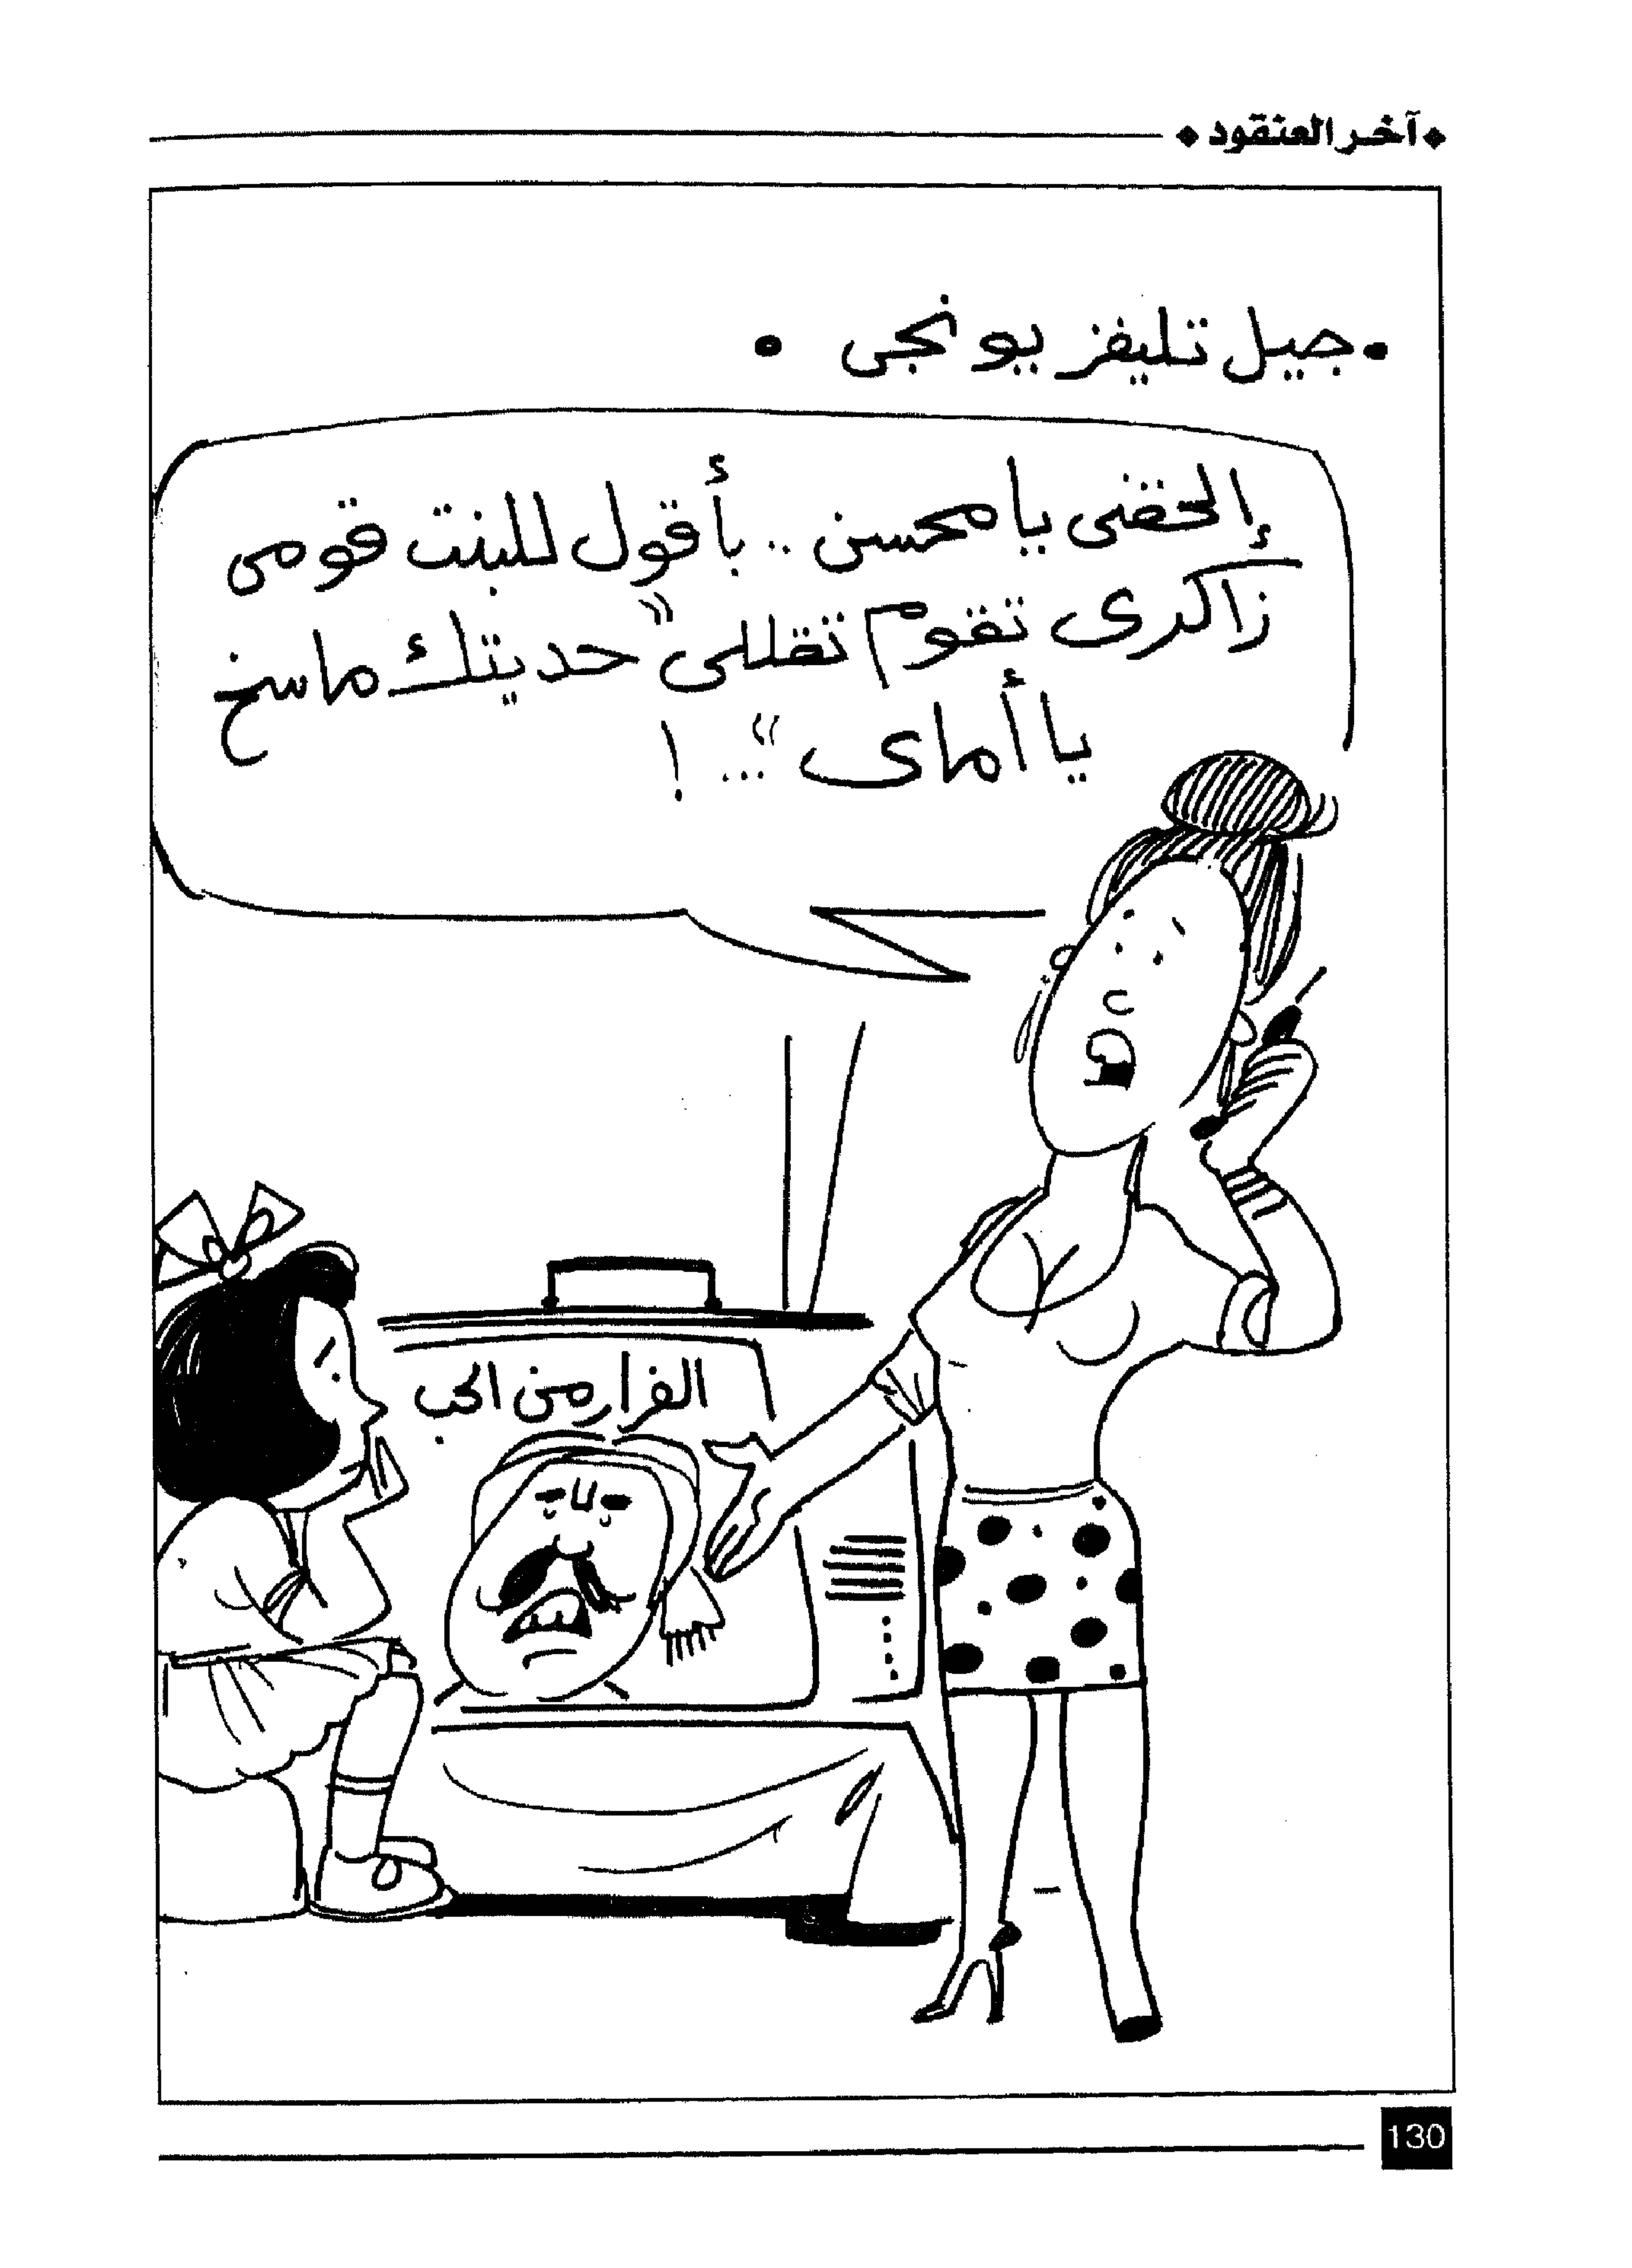 آخر العنقود
• جيل تليفزيونجى •
إلحقنى يا محسن .. بأقول للبنت قومى
زاكرى تقوم تقللى "حديتك ماسخ
يا أماى" ... !
الفرار من الحب
130